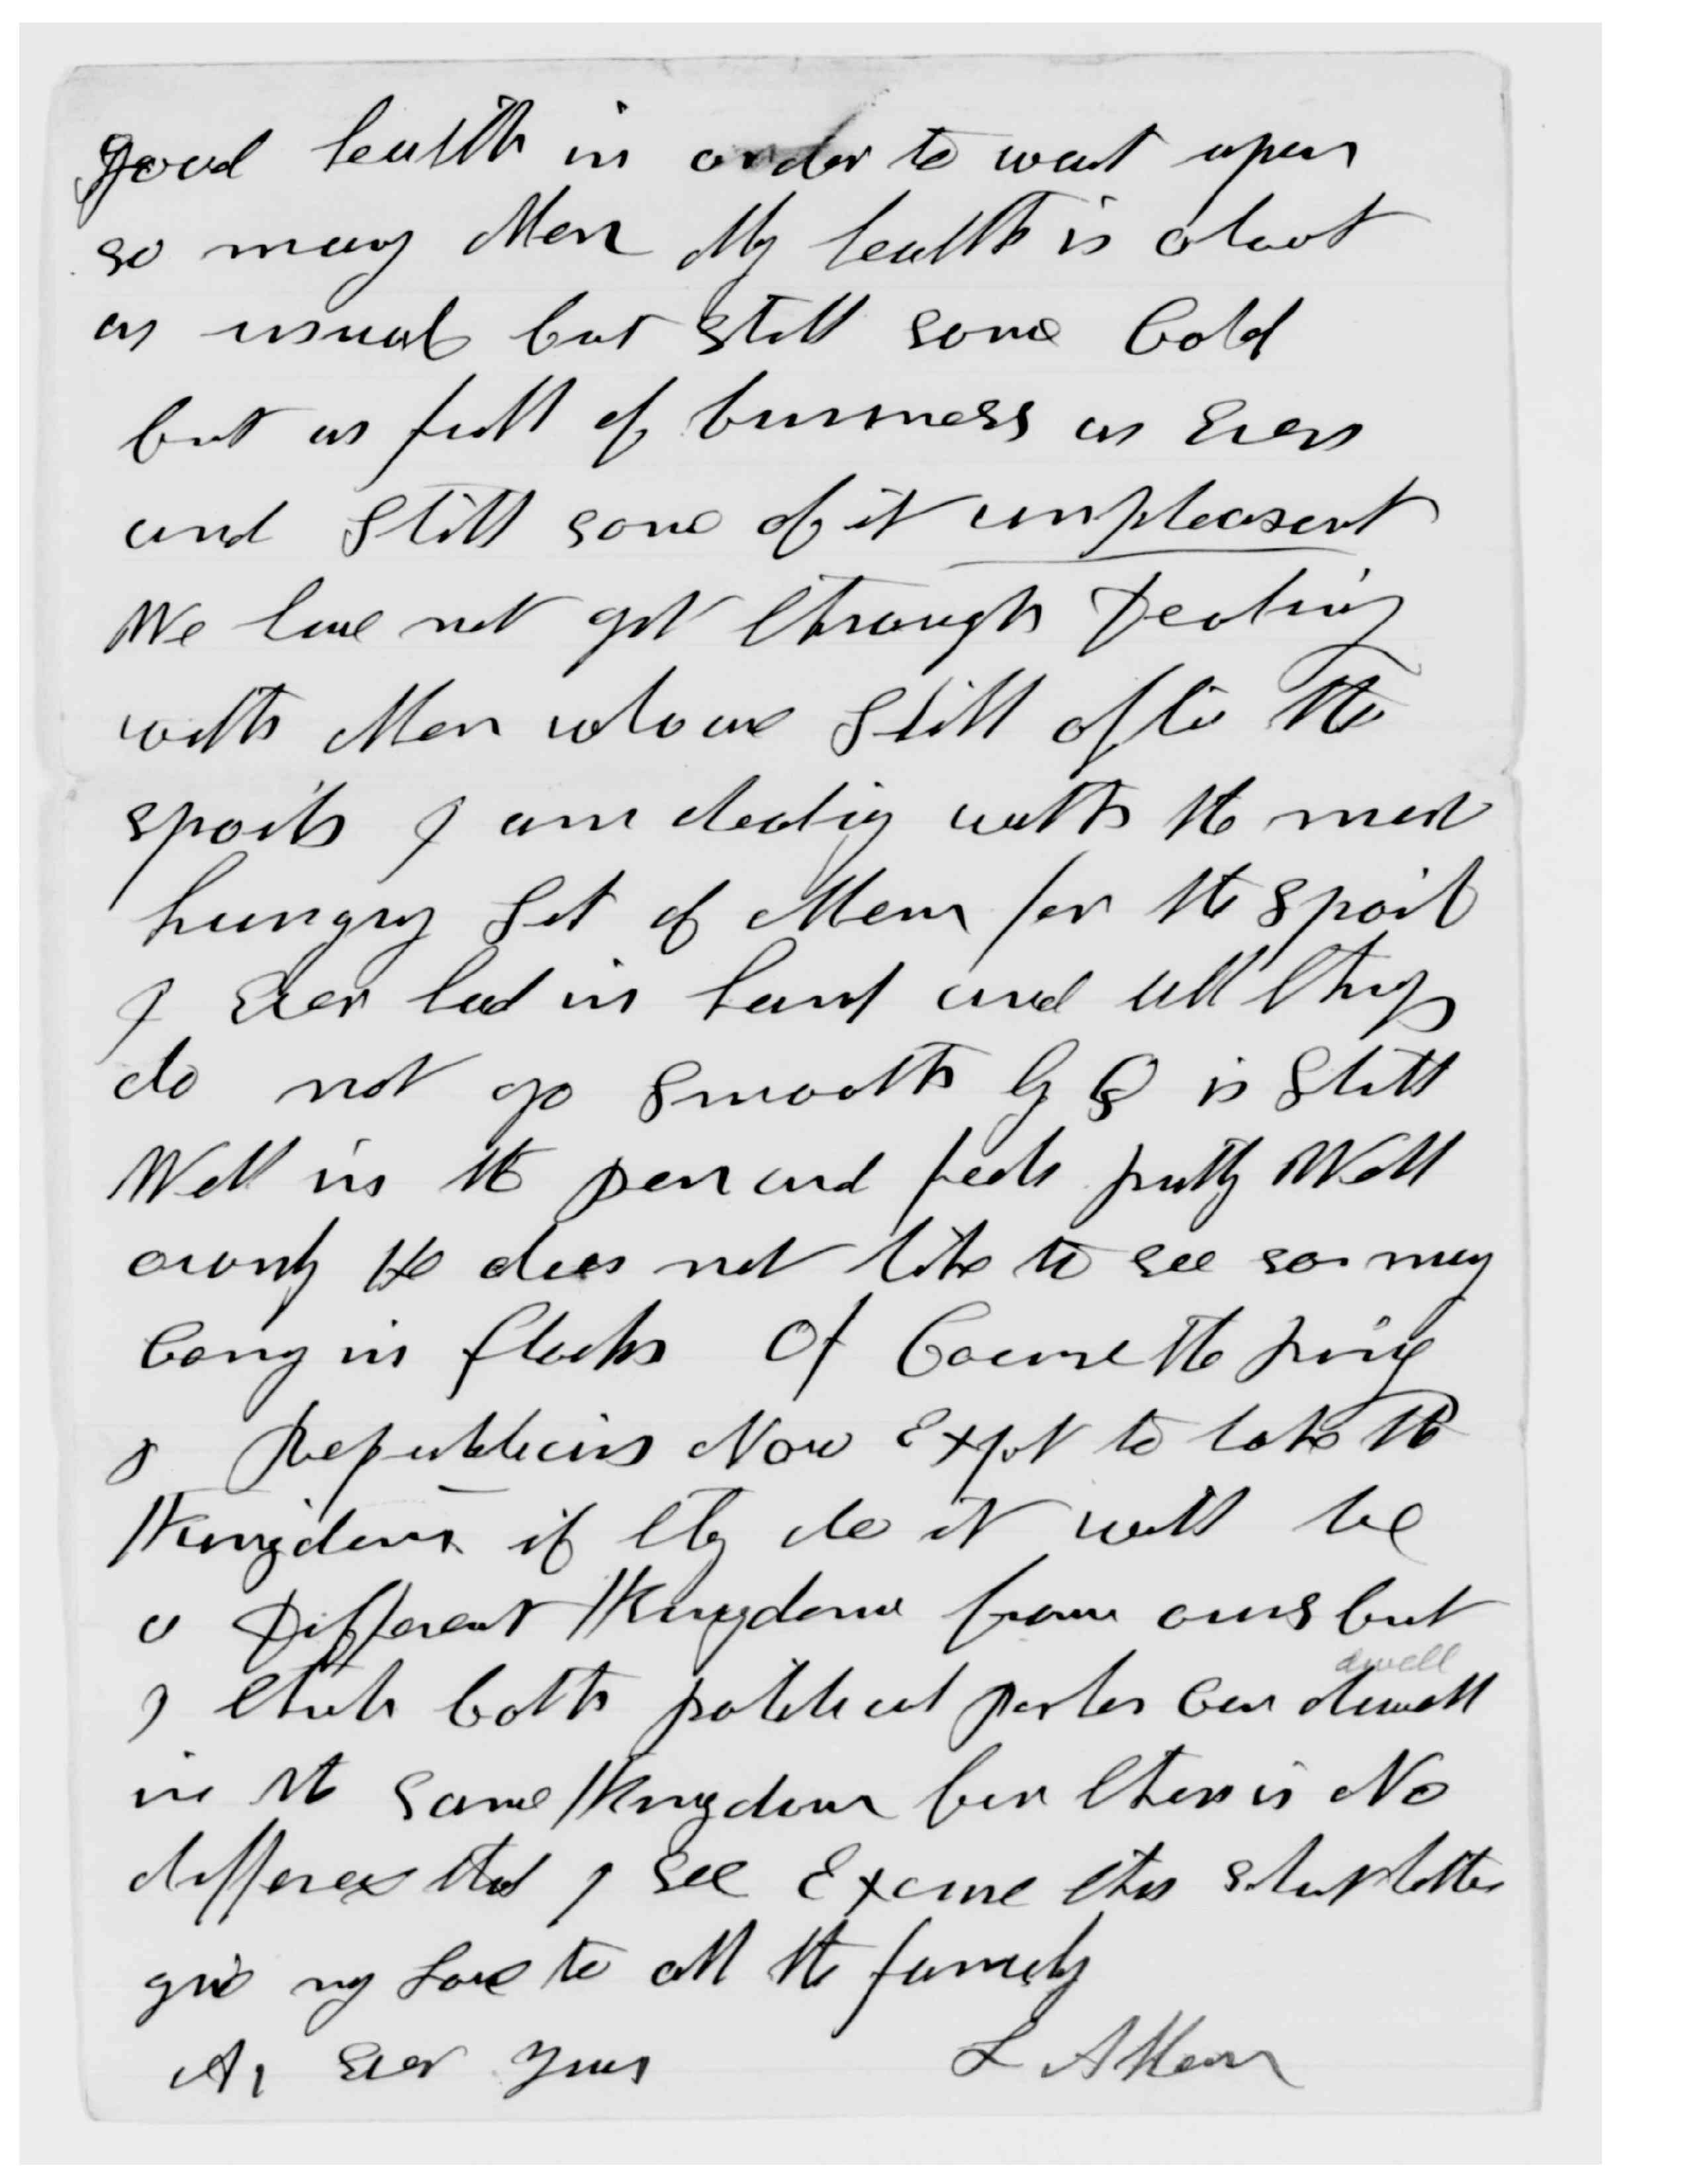 good health in order to wait upon
so many Men My health is about
as usual but still some Cold
but as full of business as Ever
and Still some of it unpleasant
We have not got through Dealing
with Men who are Still after the
spoils I am dealing with the most
hungry Set of Men for the Spoil
I Ever had in hand and all things
do not go Smooth G Q is Still
Well in the pen and feels pretty Well
ownly He does not like to see so many
Coming in flocks Of Course the
Republicans Now Expt to take the
Kingdom if they do it will be
a Different Kingdom from ours but
dwell
I think both political parties Can dwell
in the Same Kingdom for there is No
differece that I see Excuse this short letter
give my Love to all the family
As Ever Yours L A